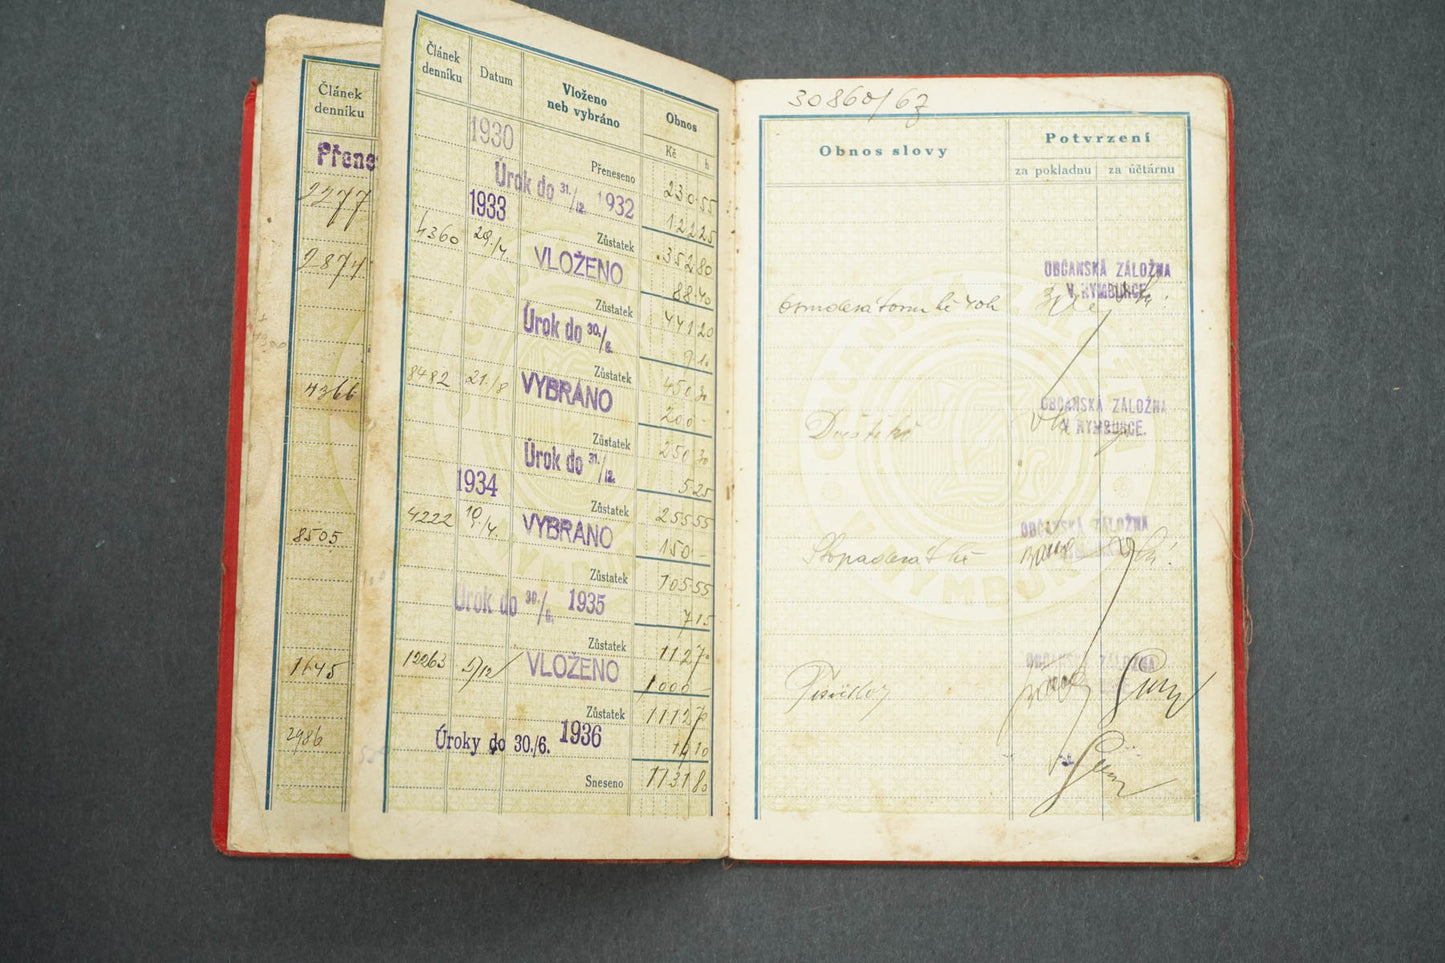 Článek
denníku
Přene
2277
2874
4366
8505
1145
2986
Článek
denníku
Datum
Vloženo
neb vybráno
Obnos
Kč h
1930
Přeneseno 230 55
Úrok do 31./12. 1932 122 25
1933
Zůstatek 352 80
4360 29./4. VLOŽENO 88 40
Zůstatek 441 20
Úrok do 30./6. 9 10
Zůstatek 450 30
8482 21./8 VYBRÁNO 200 -
Zůstatek 250 30
Úrok do 31./12. 5 25
1934
Zůstatek 255 55
4222 10/4. VYBRÁNO 150 -
Zůstatek 105 55
Úrok do 30./6. 1935 7 15
Zůstatek 112 70
12263 5/12 VLOŽENO 1000
Zůstatek 1112 70
Úroky do 30./6. 1936 19 10
Sneseno 1131 80
30860/63
Obnos slovy
Potvrzení
za pokladnu za účtárnu
OBČANSKÁ ZÁLOŽNA
V NYMBURCE.
Osmdesátosm kč 40h
OBČANSKÁ ZÁLOŽNA
V NYMBURCE.
Dvěstě kč
OBČANSKÁ ZÁLOŽNA
OBČANSKÁ ZÁLOŽNA